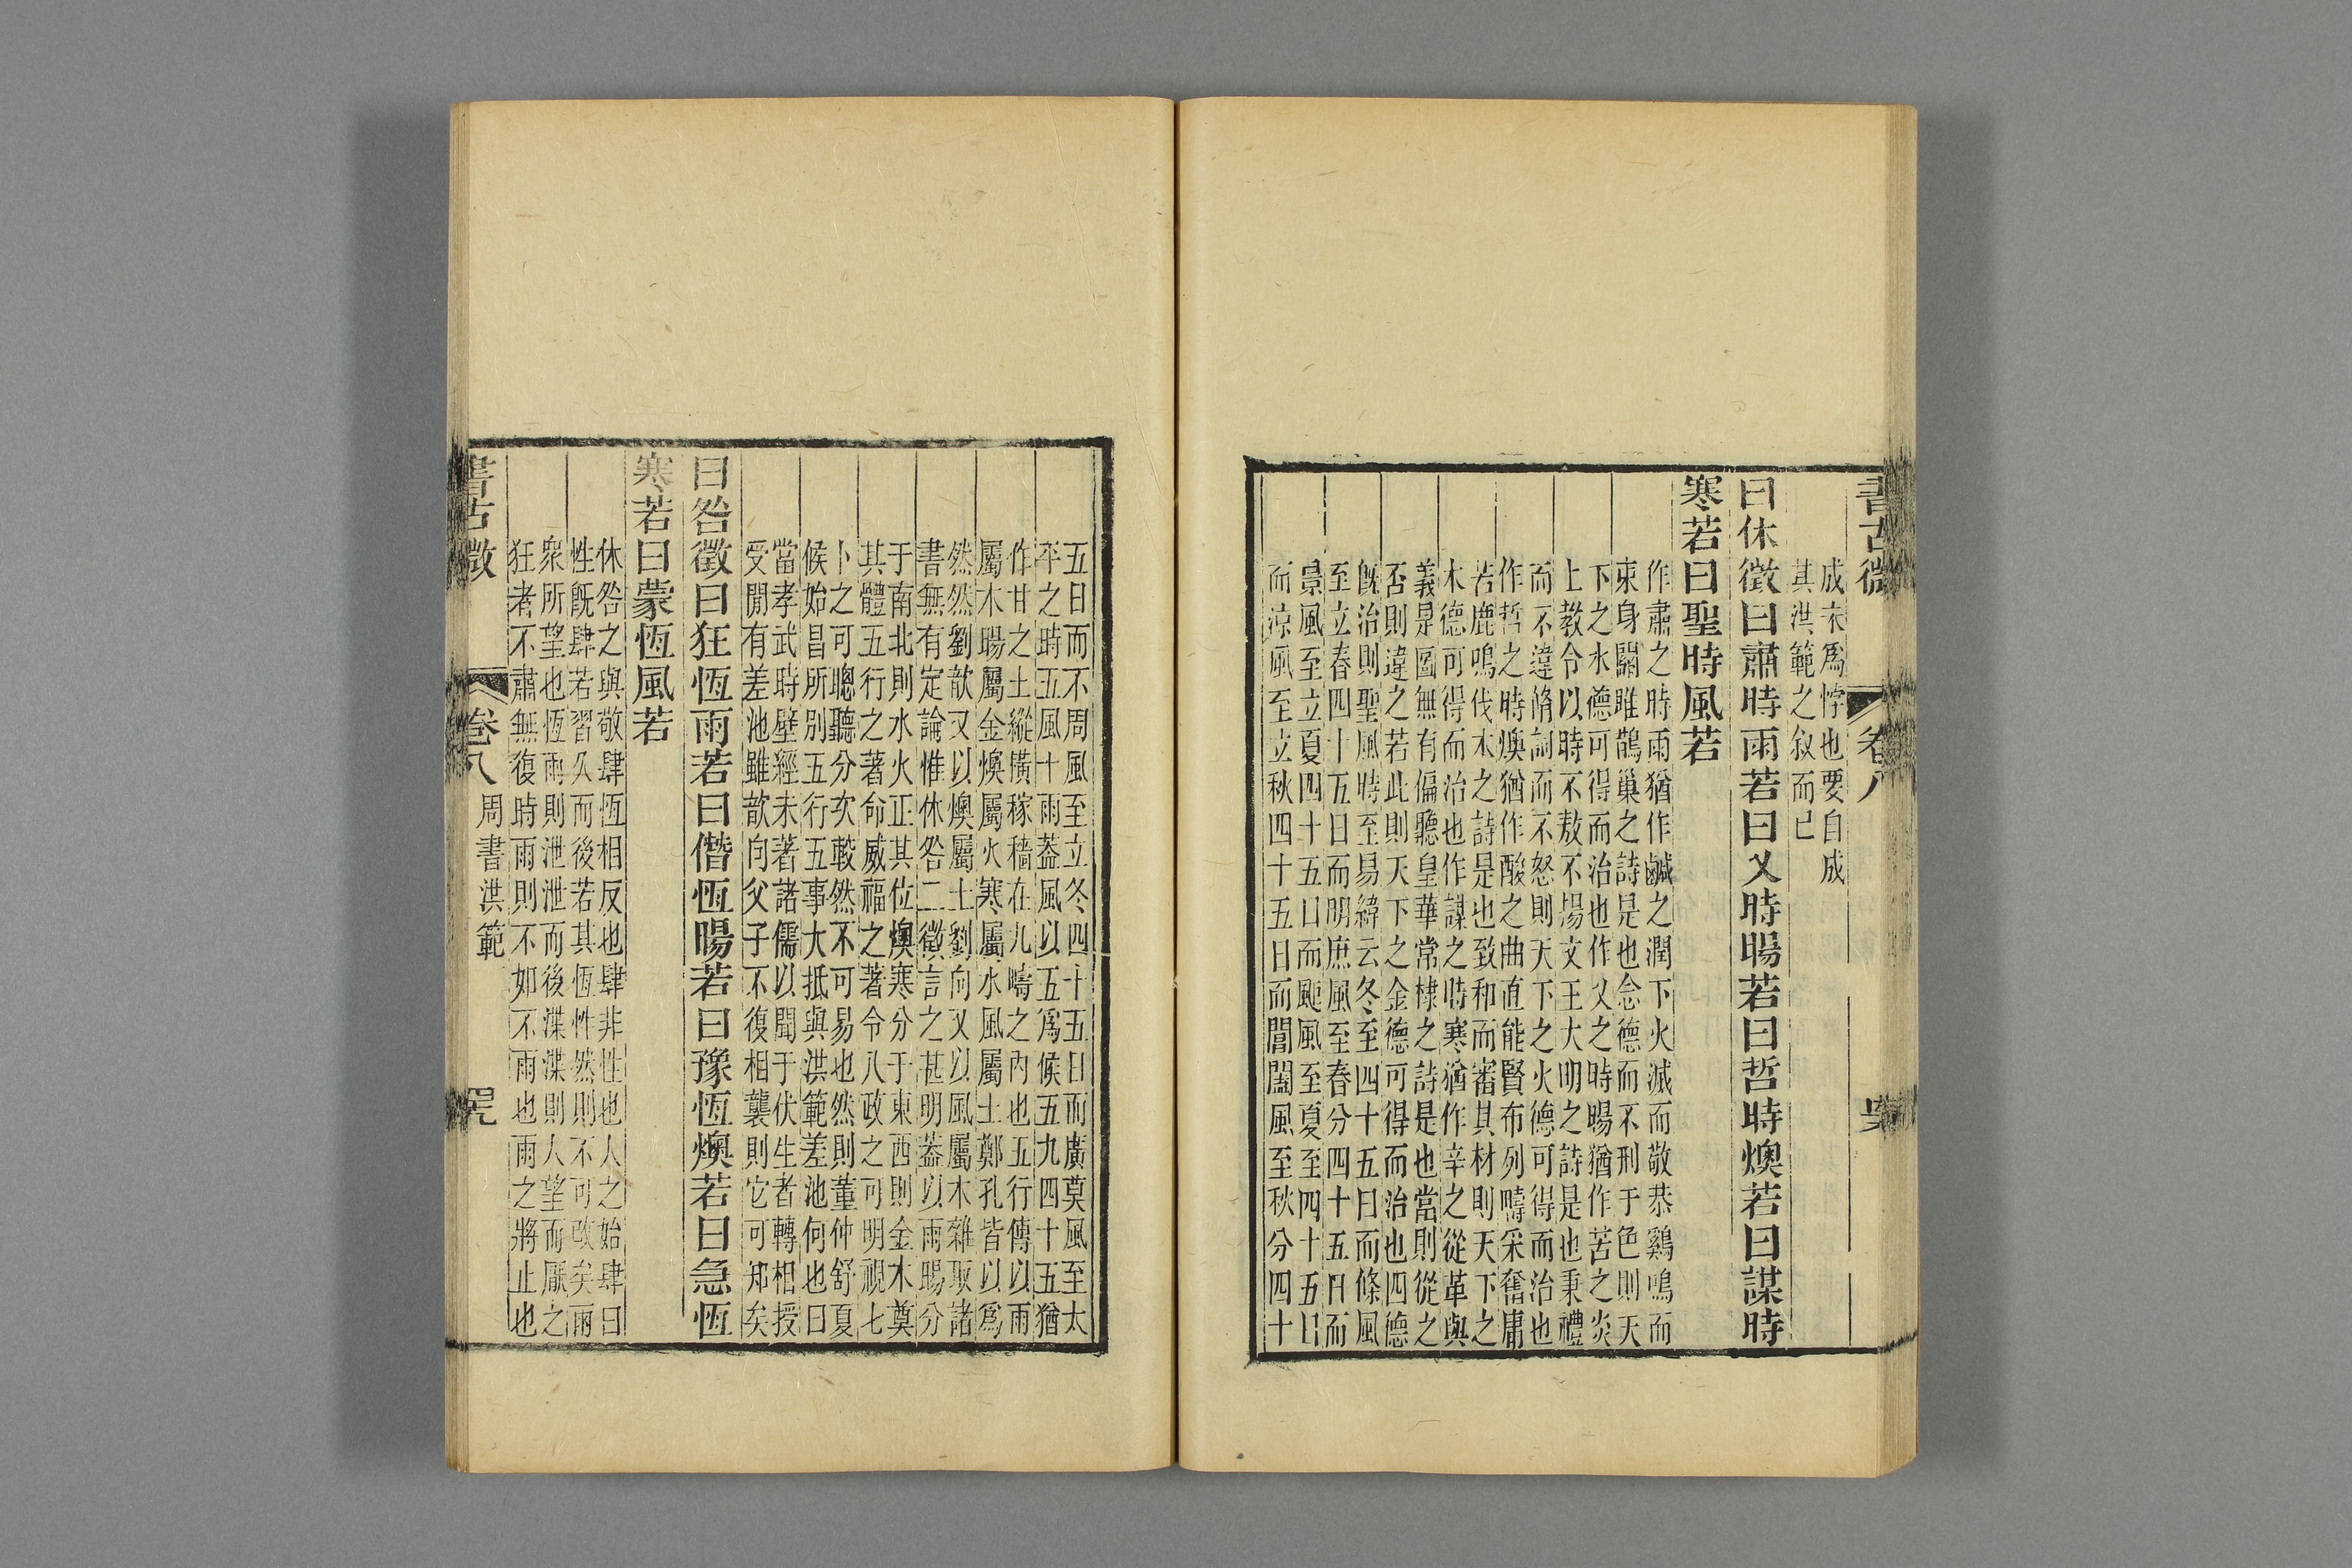 書古微
卷八
成未爲悖也要自成
其洪範之叙而已
曰休徵曰肅時雨若曰乂時暘若曰哲時燠若曰謀時
寒若曰聖時風若
作肅之時雨猶作鹹之潤下火滅而敬恭鷄鳴而
束身關雎鵲巢之詩是也念德而不刑于色則天
下之水德可得而治也作乂之時暘猶作苦之炎
上教令以時不敖不揚文王大明之詩是也秉禮
而不違脩詞而不怒則天下之火德可得而治也
作哲之時燠猶作酸之曲直能賢布列疇采奮庸
若鹿鳴伐木之詩是也致和而審其材則天下之
木德可得而治也作謀之時寒猶作辛之從革與
義是圖無有偏聽皇華常棣之詩是也當則從之
否則違之若此則天下之金德可得而治也四德
旣治則聖風時至易緯云冬至四十五日而條風
至立春四十五日而明庶風至春分四十五日而
景風至立夏四十五日而颸風至夏至四十五日
而涼風至立秋四十五日而閶闔風至秋分四十
五日而不周風至立冬四十五日而廣莫風至太
平之時五風十雨蓋風以五爲候五九四十五猶
作甘之土縱橫稼穡在九疇之內也五行傳以雨
屬木暘屬金燠屬火寒屬水風屬土鄭孔皆以爲
然然劉歆又以燠屬土劉向又以風屬木雜取諸
書無有定論惟休咎二徵言之甚明蓋以雨暘分
于南北則水火正其位燠寒分于東西則金木奠
其體五行之著命威福之著令八政之可明視七
卜之可聰聽分次較然不可易也然則董仲舒夏
候始昌所別五行五事大抵與洪範差池何也曰
當孝武時壁經未著諸儒以聞于伏生者轉相授
受閒有差池雖歆向父子不復相襲則它可知矣
曰咎徵曰狂恆雨若曰僭恆暘若曰豫恆燠若曰急恆
寒若曰蒙恆風若
休咎之與敬肆恆相反也肆非性也人之始肆曰
性旣肆若習久而後若其恆性然則不可改矣雨
衆所望也恆雨則泄泄而後渫渫則人望而厭之
狂者不肅無復時雨則不如不雨也雨之將止也
書古微
卷八
周書洪範